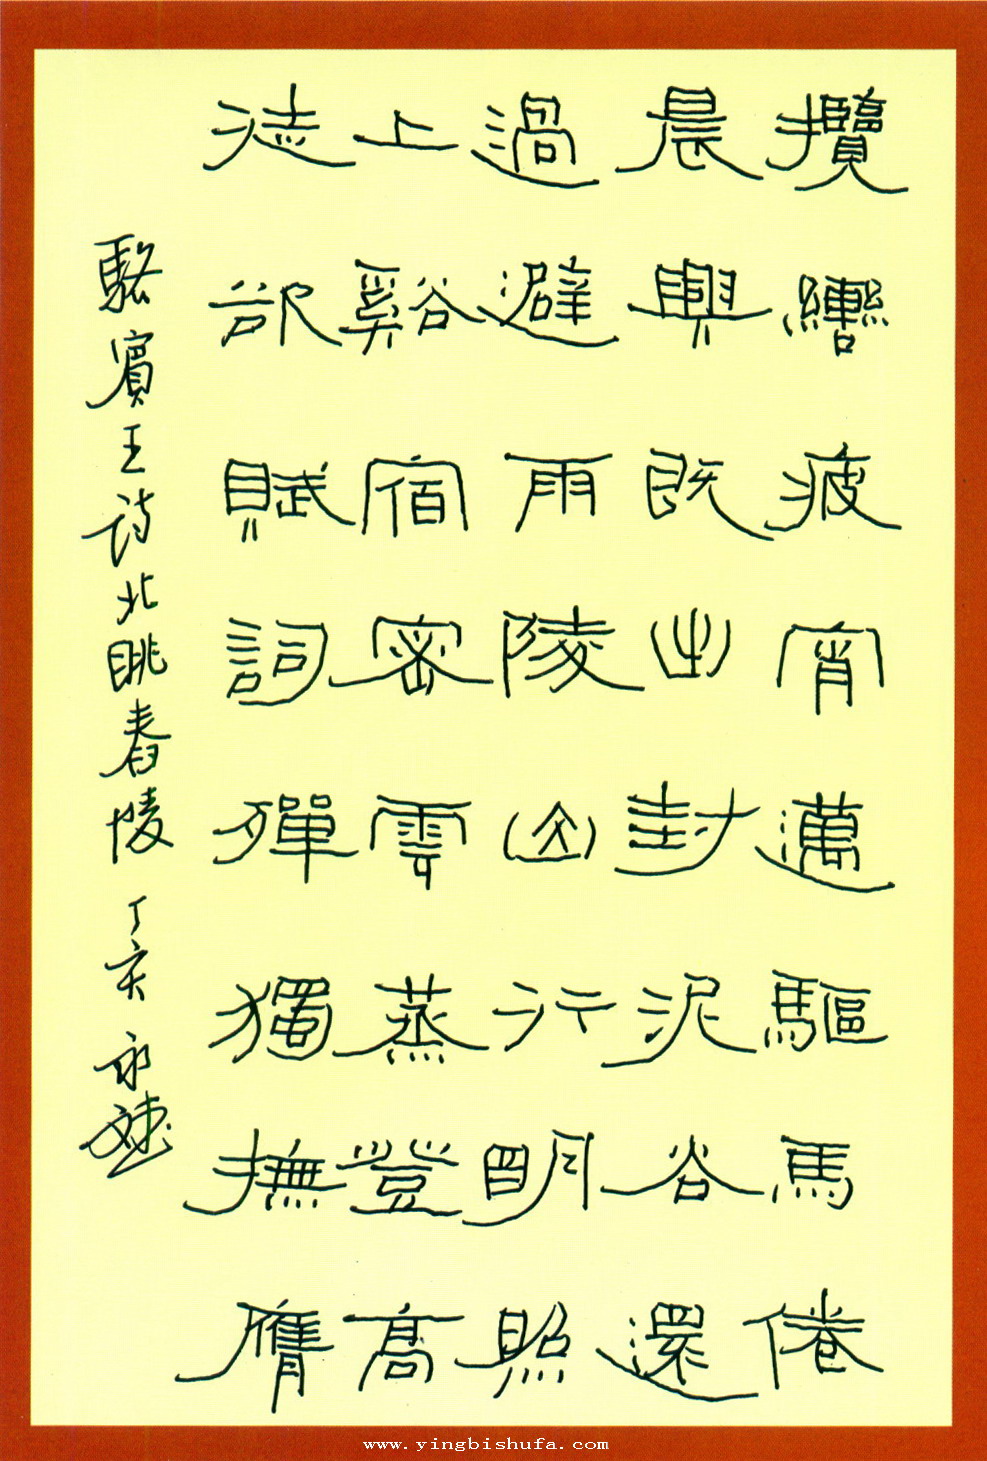 攬轡疲宵邁驅馬倦
晨興既出封泥谷還
過避雨陵山行明照
上谿宿密雲蒸登高
徒欲賦詞殫獨撫膺
駱賓王詩北眺舂陵 丁亥 永
www.yingbishufa.com